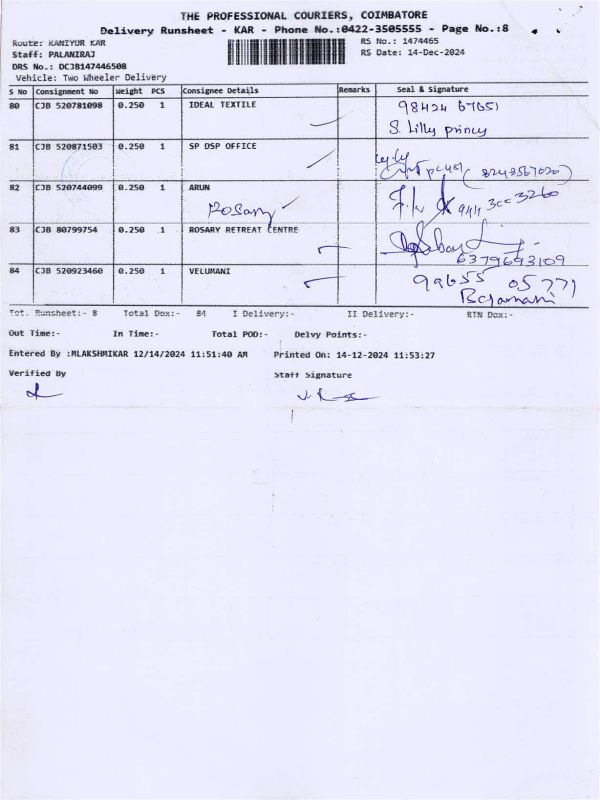 THE PROFESSIONAL COURIERS, COIMBATORE
Delivery Runsheet - KAR - Phone No.:0422-3505555 - Page No.:8
Route: KANIYUR KAR
RS No.: 1474465
Staff: PALANIRAJ
RS Date: 14-Dec-2024
DRS No.: DCJB147446508
Vehicle: Two Wheeler Delivery
S No Consignment No Weight PCS Consignee Details Remarks Seal & Signature
80 CJB 520781098 0.250 1 IDEAL TEXTILE 98424 67651
S. Lilly princy
81 CJB 520871503 0.250 1 SP DSP OFFICE
82 CJB 520744099 0.250 1 ARUN
Rosary
83 CJB 80799754 0.250 1 ROSARY RETREAT CENTRE
6379693109
84 CJB 520923460 0.250 1 VELUMANI 99655 05771
Tot. Runsheet:- 8 Total Dox:- 84 I Delivery:- II Delivery:- RTN Dox:-
Out Time:- In Time:- Total POD:- Delvy Points:-
Entered By :MLAKSHMIKAR 12/14/2024 11:51:40 AM Printed On: 14-12-2024 11:53:27
Verified By Staff Signature